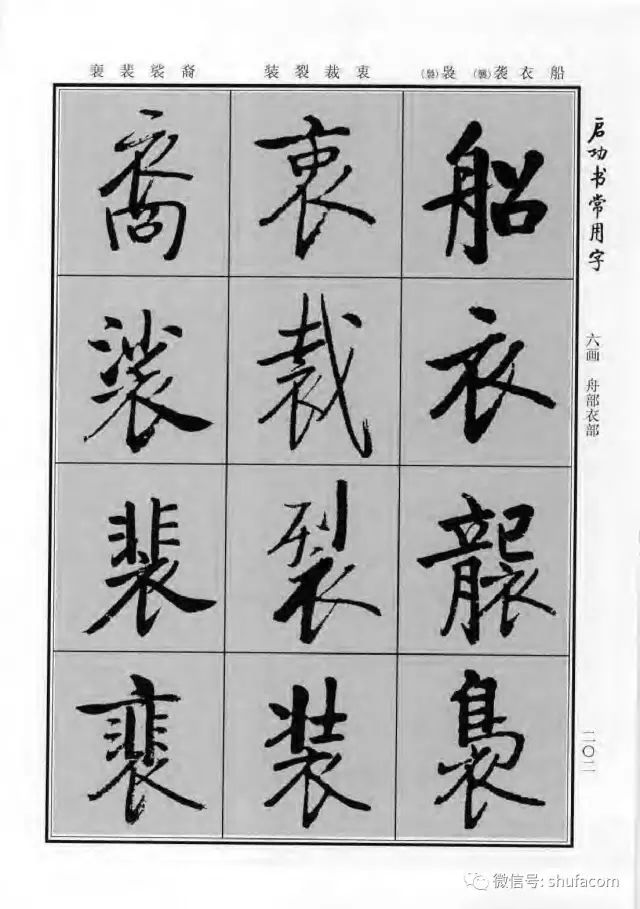 船衣袭(襲)袅(裊)
衷裁裂装
裔裟裴裵
启功书常用字
六画 舟部衣部
二〇二
船
衣
襲
裊
衷
裁
裂
装
裔
裟
裴
裵
微信号: shufacom